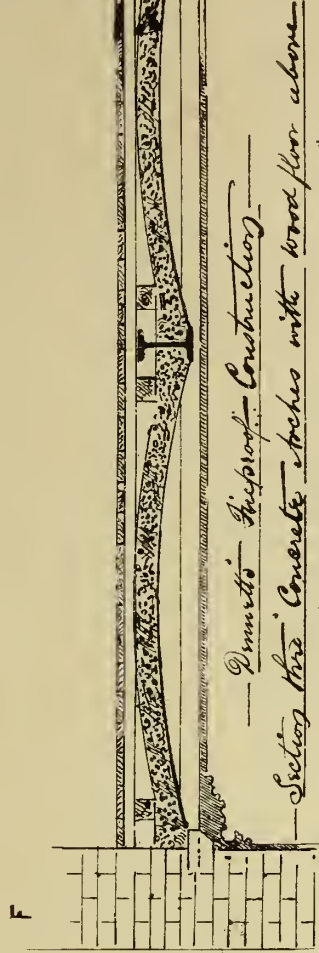 F
Dennett's Fireproof Construction
Section thro' Concrete Arches with wood floor above